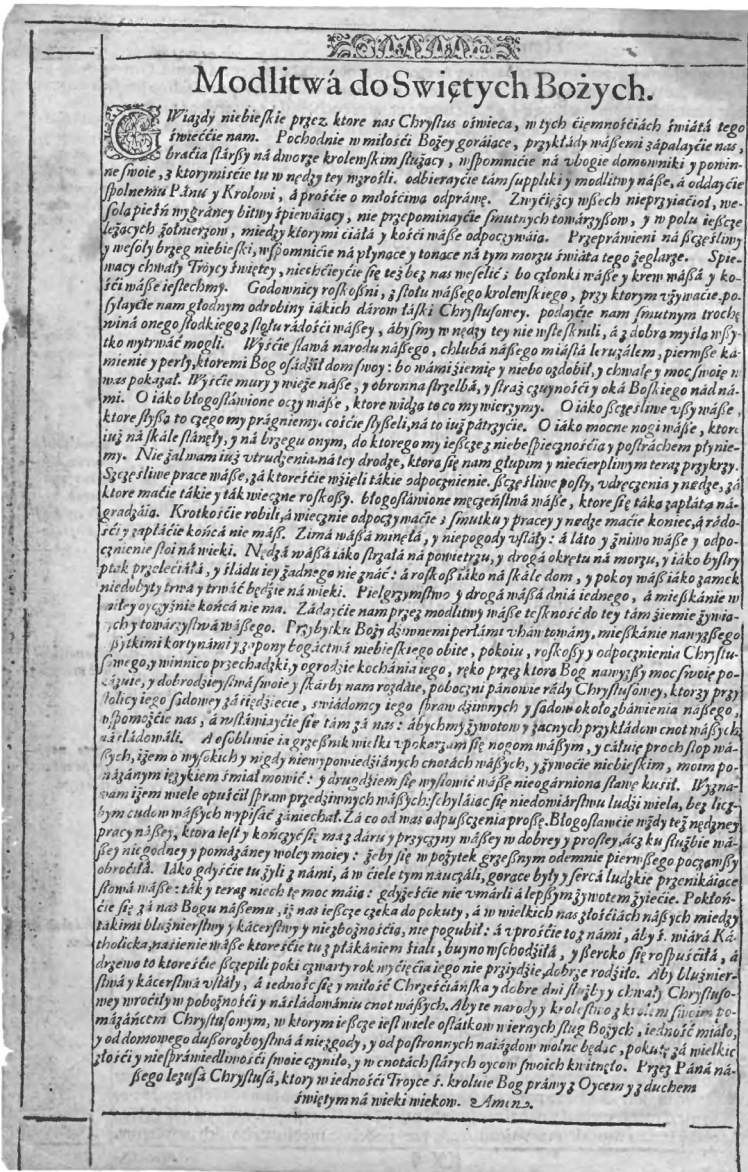 Modlitwá do Swiętych Bożych.
GWiazdy niebieskie przez ktore nas Chrystus oświeca, w tych ćiemnośćiách świátá tego
świeććie nam. Pochodnie w miłośći Bożey goráiące, przykłády wászemi zápalayćie nas,
bráćia stárszy ná dworze krolewskim służący, wspomnićie ná vbogie domowniki y powin-
ne swoie, z ktorymiśćie tu w nędzy tey wzrośli. odbierayćie tám suppliki y modlitwy násze, á oddayćie
społnemu Pánu y Krolowi, á prośćie o miłośćiwą odpráwę. Zwyćięzcy wszech nieprzyiaćioł, we-
sołą pieśń wygráney bitwy śpiewáiący, nie przepominayćie smutnych towárzyszow, y w polu ieszcze
leżących żołnierzow, miedzy ktorymi ćiáłá y kośći wásze odpoczywáią. Przepráwieni ná szczęśliwy
y wesoły brzeg niebieski, wspomnićie ná płynące y tonące ná tym morzu świáta tego żeglarze. Spie-
wacy chwały Troycy świętey, niechćieyćie się też bez nas weselić: bo członki wásze y krew wászá y ko-
śći wásze iestechmy. Godownicy roskoszni, z stołu wászego krolewskiego, przy ktorym vżywaćie, po-
syłayćie nam głodnym odrobiny iákich dárow łáski Chrystusowey. podayćie nam smutnym trochę
winá onego słodkiego z stołu rádośći wászey, ábysmy w nędzy tey nie wstesknili, á z dobrą myślą wszy-
tko wytrwáć mogli. Wyśćie sławá narodu nászego, chlubá nászego miástá Ieruzálem, pierwsze ká-
mienie y perły, ktoremi Bog osádźił dom swoy: bo wámi źiemię y niebo ozdobił, y chwałę y moc swoię w
was pokazał. Wyśćie mury y wieże násze, y obronna strzelbá, y straż czuynośći y oká Boskiego nád ná-
mi. O iáko błogosłáwione oczy wásze, ktore widzą to co my wierzymy. O iáko szczęśliwe vszy wásze,
ktore słyszą to czego my prágniemy. cośćie słyszeli, ná to iuż pátrzyćie. O iáko mocne nogi wásze, ktore
iuż ná skále stánęły, y ná brzegu onym, do ktorego my ieszcze z niebespiecznośćią y postráchem płynie-
my. Nie żal wam iuż vtrudzenia ná tey drodze, ktora się nam głupim y niećierpliwym teraz przykrzy.
Szczęśliwe prace wásze, zá ktoreśćie wźięli tákie odpocznienie. szczęśliwe posty, vdręczenia y nędze, zá
ktore maćie tákie y ták wieczne roskoszy. błogosłáwione męczeństwá wásze, ktore się táką zapłátą ná-
gradzáią. Krotkośćie robili, á wiecznie odpoczywaćie: smutku y pracey y nędze maćie koniec, á rádo-
śći y zapłáćie końcá nie mász. Zimá wászá minęłá, y niepogody vstáły: á láto y żniwo wásze y odpo-
cznienie stoi ná wieki. Nędzá wászá iáko strzałá ná powietrzu, y drogá okrętu ná morzu, y iáko bystry
ptak przelećiáłá, y śládu iey żadnego nie znáć: á roskosz iáko ná skále dom, y pokoy wász iáko zamek
niedobyty trwa y trwáć będźie ná wieki. Pielgrzymstwo y drogá wászá dniá iednego, á mieszkánie w
oyczyźnie końcá nie ma. Zádayćie nam przez modlitwy wásze teskność do tey tám źiemie żywią-
cych y towárzystwá wászego. Przybytku Boży dźiwnemi perłámi vháwtowány, mieszkánie nawyszszego
kortynámi y z opony bogáctwá niebieskiego obite, pokoiu, roskoszy y odpocznienia Chrystu-
sowego, y winnico przechadzki, y ogrodźie kochánia iego, ręko przez ktorą Bog nawyszszy moc swoię po-
kázuie, y dobrodźieystwá swoie y skárby nam rozdáie, poboczni pánowie rády Chrystusowey, ktorzy przy
stolicy iego sądowey záśiędźiećie, świádomcy iego spraw dźiwnych y sądow około zbáwienia nászego,
wspomożćie nas, á wstáwiayćie się tám zá nas: ábychmy żywotow y zacnych przykłádow cnot wászych
náśládowáli. A osobliwie ia grzesznik wielki vpokarzam się nogom wászym, y cáłuię proch stop wá-
szych, iżem o wysokich y nigdy niewypowiedźiánych cnotách wászych, y żywoćie niebieskim,
pomázánym ięzykiem śmiał mowić: y drugdźiem się wysłowić wászę nieogárnioną sławę kuśił. Wyzna-
wam iżem wiele opuśćił spraw przedźiwnych wászych: schyláiąc się niedowiárstwu ludźi wiela, bez licz-
bym cudow wászych wypisáć zániechał. Zá co od was odpuszczenia proszę. Błogosławćie wżdy też nędzney
pracy nászey, ktora iest y kończyć się ma z dáru y przyczyny wászey w dobrey y prostey, ácz ku służbie wá-
szey niegodney y pomázáney woley moiey: żeby się w pożytek grzesznym odemnie pierwszego począwszy
obroćiłá. Iáko gdyśćie tu żyli z námi, á w ćiele tym náuczáli, gorące były y sercá ludzkie przenikáiące
słowá wásze: ták y teraz niech tę moc máią: gdyżeśćie nie vmárli á lepszym żywotem żyiećie. Pokłoń-
ćie się zá nas Bogu nászemu, iż nas ieszcze czeka do pokuty, á w wielkich nas złośćiách nászych miedzy
tákimi bluźnierstwy y kácerstwy y niezbożnośćią, nie pogubił: á vprośćie to z námi, áby ś. wiárá Ká-
tholicka, naśienie wásze ktoreśćie tu z płákániem śiali, buyno wschodźiłá, y szeroko się rospuśćiłá, á
drzewo to ktoreśćie szczepili poki czwarty rok wyćięćia iego nie przyidźie, dobrze rodźiło. Aby bluźnier-
stwá y kácerstwá vstáły, á iedność się y miłość Chrześćiáńska y dobre dni służby y chwały Chrystuso-
wey wroćiły w pobożnośći y náśládowániu cnot wászych. Aby te narody y krolestwo z krolem swoim po-
mázáńcem Chrystusowym, w ktorym ieszcze iest wiele ostátkow wiernych sług Bożych, iedność miáło,
y od domowego duszoroboystwá á niezgody, y od postronnych naiázdow wolne będąc, pokutę zá wielkie
złośći y niespráwiedliwośći swoie czyniło, y w cnotách stárych oycow swoich kwitnęło. Przez Páná ná-
szego Iezusá Chrystusá, ktory w iednośći Troyce ś. kroluie Bog práwy z Oycem y z duchem
świętym ná wieki wiekow. Amin.